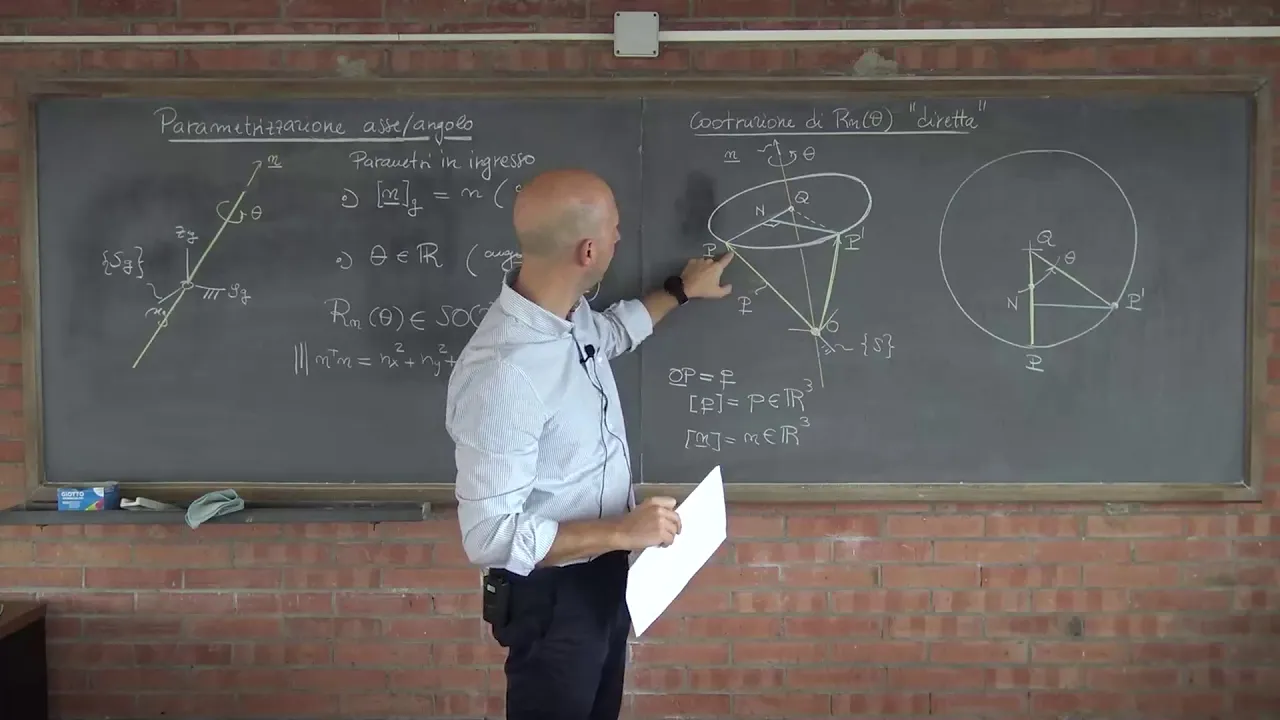 Parametrizzazione asse/angolo
n
θ
zg
{Sg}
yg
xg
Parametri in ingresso
•) [n]g = n (
•) θ ∈ ℝ (
Rn(θ) ∈ SO(
||| nᵀn = nx² + ny² +
Costruzione di Rn(θ) "diretta"
n
θ
Q
N
P
P'
p
O
{S}
OP = p
[p] = p ∈ ℝ³
[n] = n ∈ ℝ³
Q
θ
N
P'
P
GIOTTO